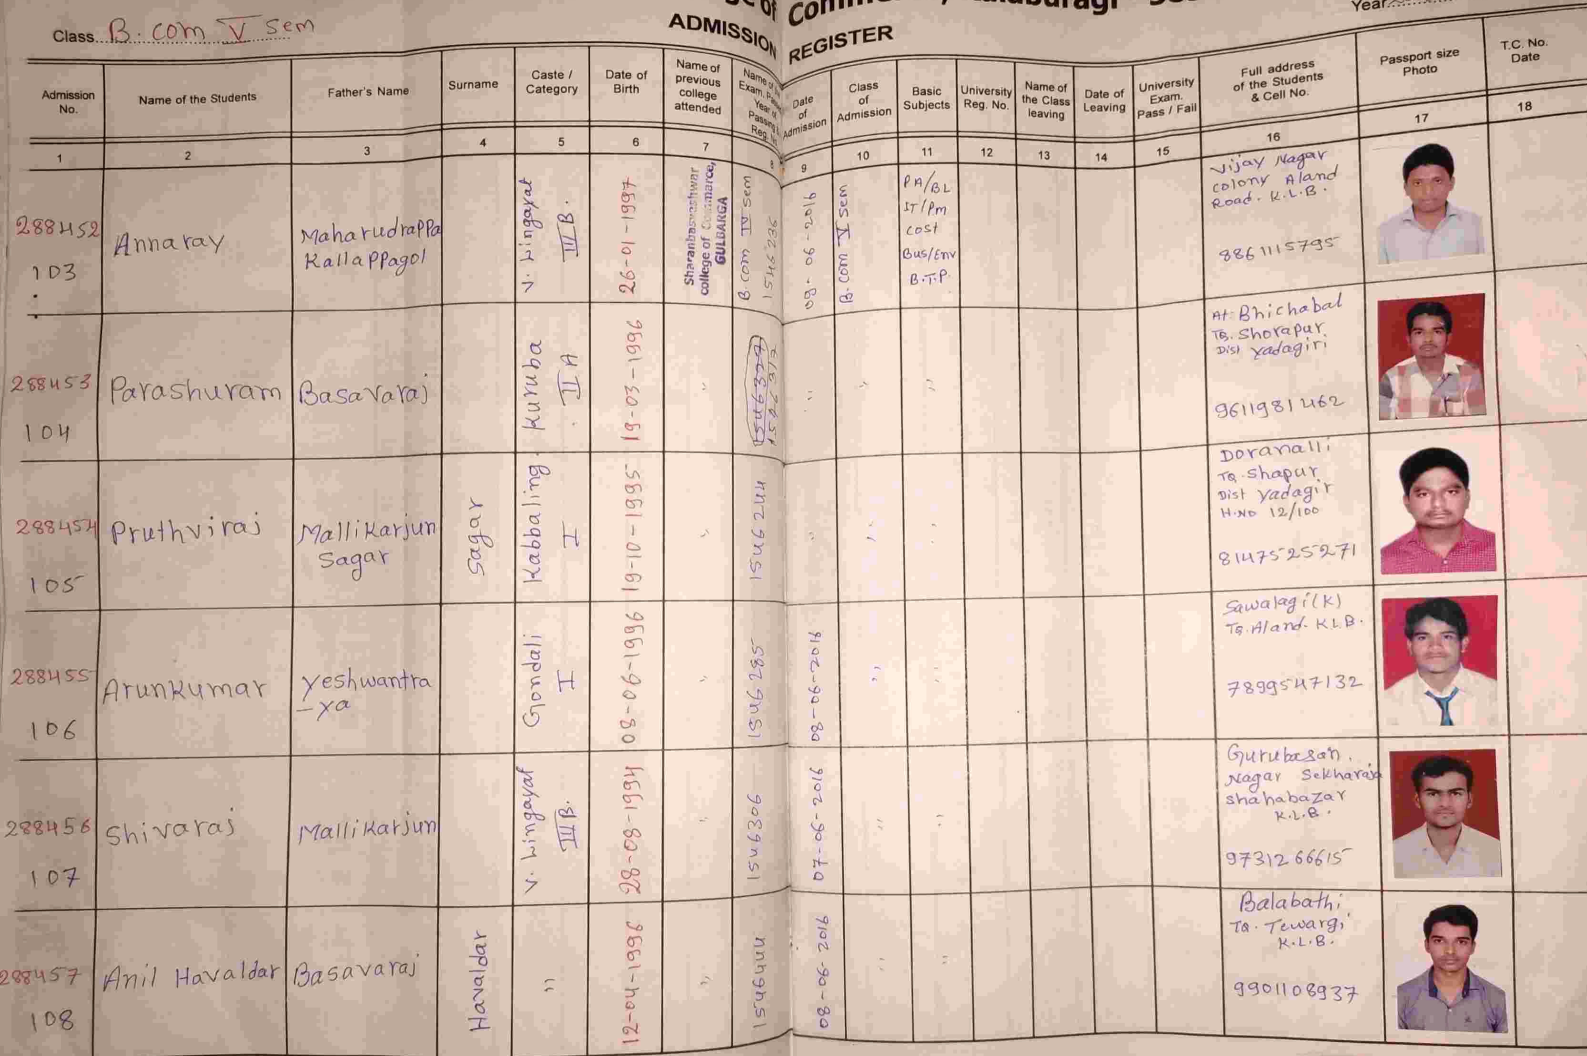 ADMISSION REGISTER
Class B. com V sem
Year
Admission No.
Name of the Students
Father's Name
Surname
Caste / Category
Date of Birth
Name of previous college attended
Date of Admission
Class of Admission
Basic Subjects
University Reg. No.
Name of the Class leaving
Date of Leaving
University Exam. Pass / Fail
Full address of the Students & Cell No.
Passport size Photo
T.C. No. Date
1 2 3 4 5 6 7 8 9 10 11 12 13 14 15 16 17 18
288452
103
Annaray
Maharudrappa
Kallappagol
V. Lingayat
III B.
26-01-1997
Sharanbasveshwar
college of Commerce,
GULBARGA
B.com IV sem
1546236
09-06-2016
B.com V sem
PA/BL
IT/Pm
cost
Bus/Env
B.T.P.
Vijay Nagar
colony Aland
Road. K.L.B.
8861115795
288453
104
Parashuram
Basavaraj
Kuruba
II A
19-03-1996
At. Bhichabal
Tq. Shorapur
Dist Yadagiri
9611981462
288454
105
Pruthviraj
Mallikarjun
Sagar
Sagar
Kabbaling
I
19-10-1995
1546244
Doranalli
TQ. Shapur
Dist Yadagir
H.NO 12/100
8147525271
288455
106
Arunkumar
Yeshwantra
-ya
Gondali
I
08-06-1996
1546285
08-06-2016
Sawalagi(K)
Tq. Aland. K.L.B.
7899547132
288456
107
Shivaraj
Mallikarjun
V. Lingayat
III B.
28-08-1994
1546306
07-06-2016
Nagar
shahabazar
K.L.B.
9731266615
288457
108
Anil Havaldar
Basavaraj
Havaldar
"
12-04-1996
"
1546444
08-06-2016
"
"
Balabathi
TQ. Tewargi
K.L.B.
9901108937